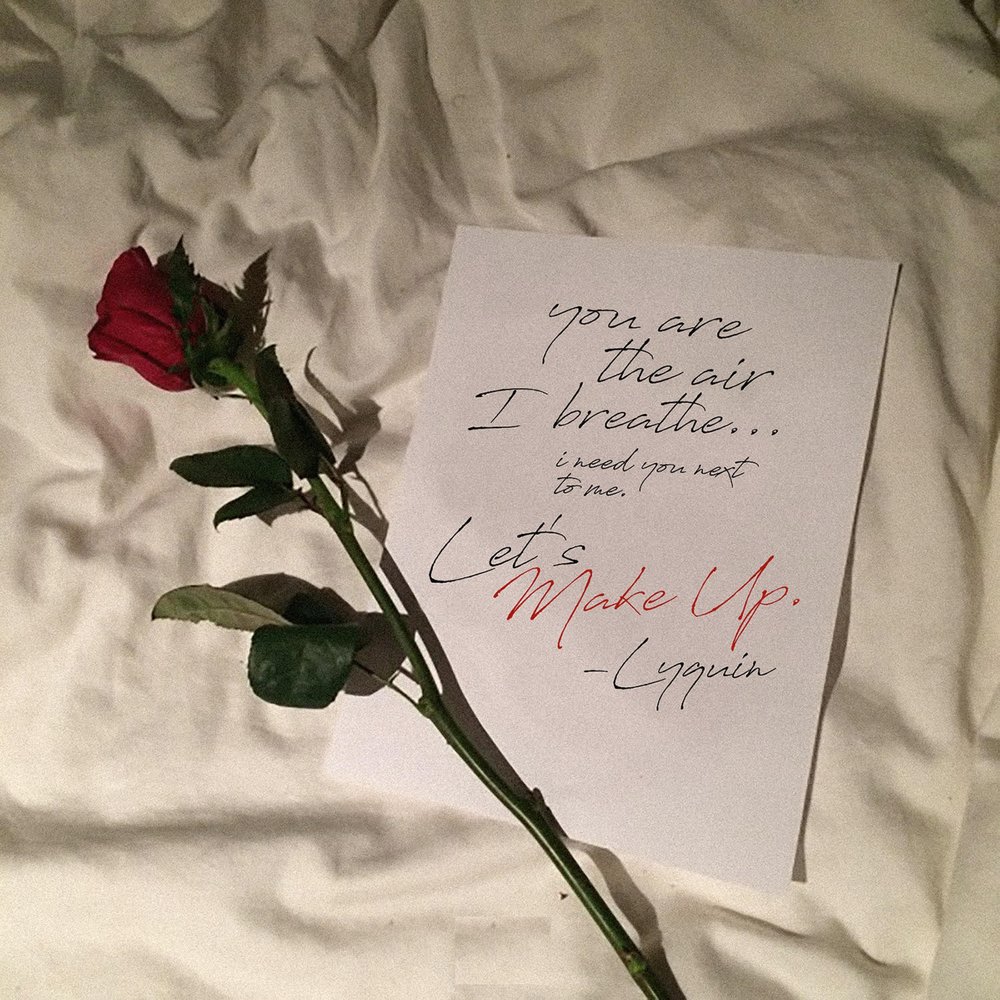 you are
the air
I breathe...
i need you next
to me.
Let's
Make Up.
-Lyquin